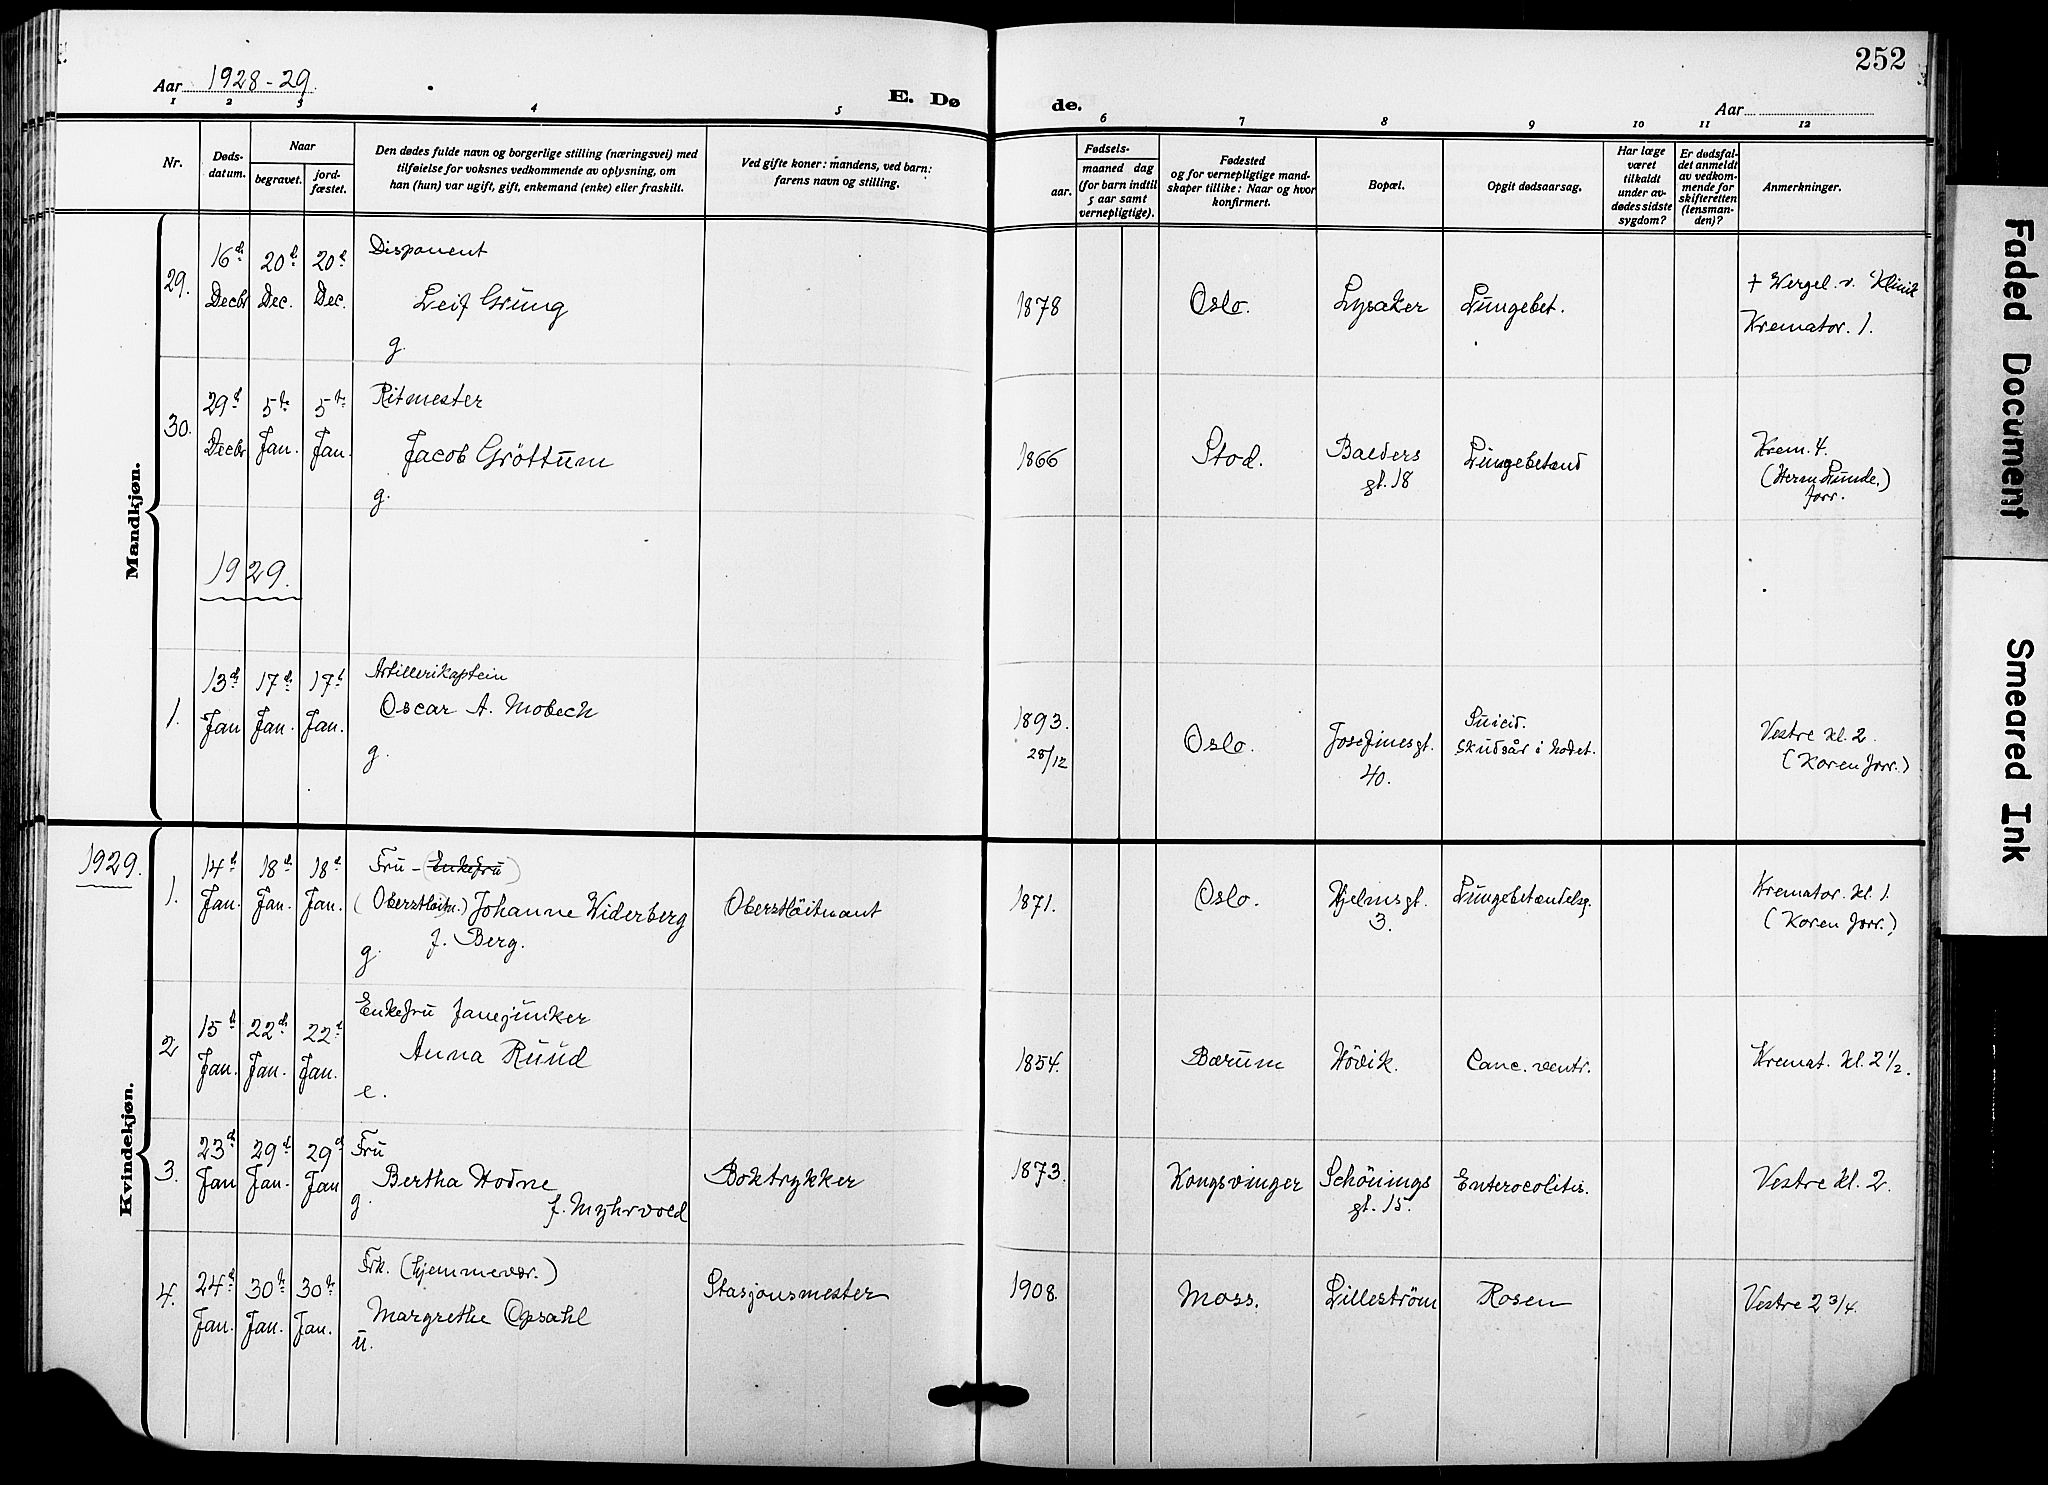 252
Aar 1928-29.
E. Dø
de.
Aar
1 2 3 4 5 6 7 8 9 10 11 12
Nr.
Døds-
datum.
Naar
begravet.
jord-
fæstet.
Den dødes fulde navn og borgerlige stilling (næringsvei) med
tilføielse for voksnes vedkommende av oplysning, om
han (hun) var ugift, gift, enkemand (enke) eller fraskilt.
Ved gifte koner: mandens, ved barn:
farens navn og stilling.
Fødsels-
aar.
maaned dag
(for barn indtil
5 aar samt
vernepligtige).
Fødested
og for vernepligtige mand-
skaper tillike: Naar og hvor
konfirmert.
Bopæl.
Opgit dødsaarsag.
Har læge
været
tilkaldt
under av-
dødes sidste
sygdom?
Er dødsfal-
det anmeldt
av vedkom-
mende for
skifteretten
(lensman-
den)?
Anmerkninger.
Mandkjøn.
29.
16de
Decbr
20de
Dec.
20de
Dec.
Disponent
Leif Grung
g.
1878
Oslo.
Lysaker
Lungebet.
+ Wergel. v. Klinik
Kremator. 1.
30.
29de
Decbr
5te
Jan.
5te
Jan.
Ritmester
Jacob Gröttum
g.
1866
Stod.
Balders
gt. 18
Lungebetænd
Krem. 4.
(Herm Lunde.)
forr.
1929.
1.
13de
Jan
17de
Jan.
17de
Jan.
Artillerikaptein
Oscar A. Mobech
g.
1893.
28/12
Oslo.
Josefinesgt.
40.
Suicid.
Skudsår i hodet.
Vestre kl. 2
(Koren forr.)
Kvindekjøn.
1929.
1.
14de
Jan.
18de
Jan.
18de
Jan.
Fru - (Enkefru)
(Oberstlöitn.) Johanne Widerberg
f. Berg.
g.
Oberstlöitnant
1871.
Oslo.
Hjelmsgt.
3.
Lungebetændels.
Kremator. kl. 1.
(Koren forr.)
2
15de
Jan.
22de
Jan.
22de
Jan.
Enkefru Fanejunker
Anna Ruud
e.
1854.
Bærum
Hövik.
Canc. ventr.
Kremat. kl. 2 1/2.
3.
23de
Jan
29de
Jan.
29de
Jan
Fru
Bertha Hodne
g. f. Myhrvold
Boktrykker
1873.
Kongsvinger
Schönings
gt. 15.
Enterocolitis.
Vestre kl. 2.
4.
24de
Jan.
30te
Jan.
30te
Jan.
Frk. (hjemmevær.)
Margrethe Opsahl
u.
Stasjonsmester
1908.
Moss.
Lilleström
Rosen
Vestre 2 3/4.
Faded Document
Smeared Ink